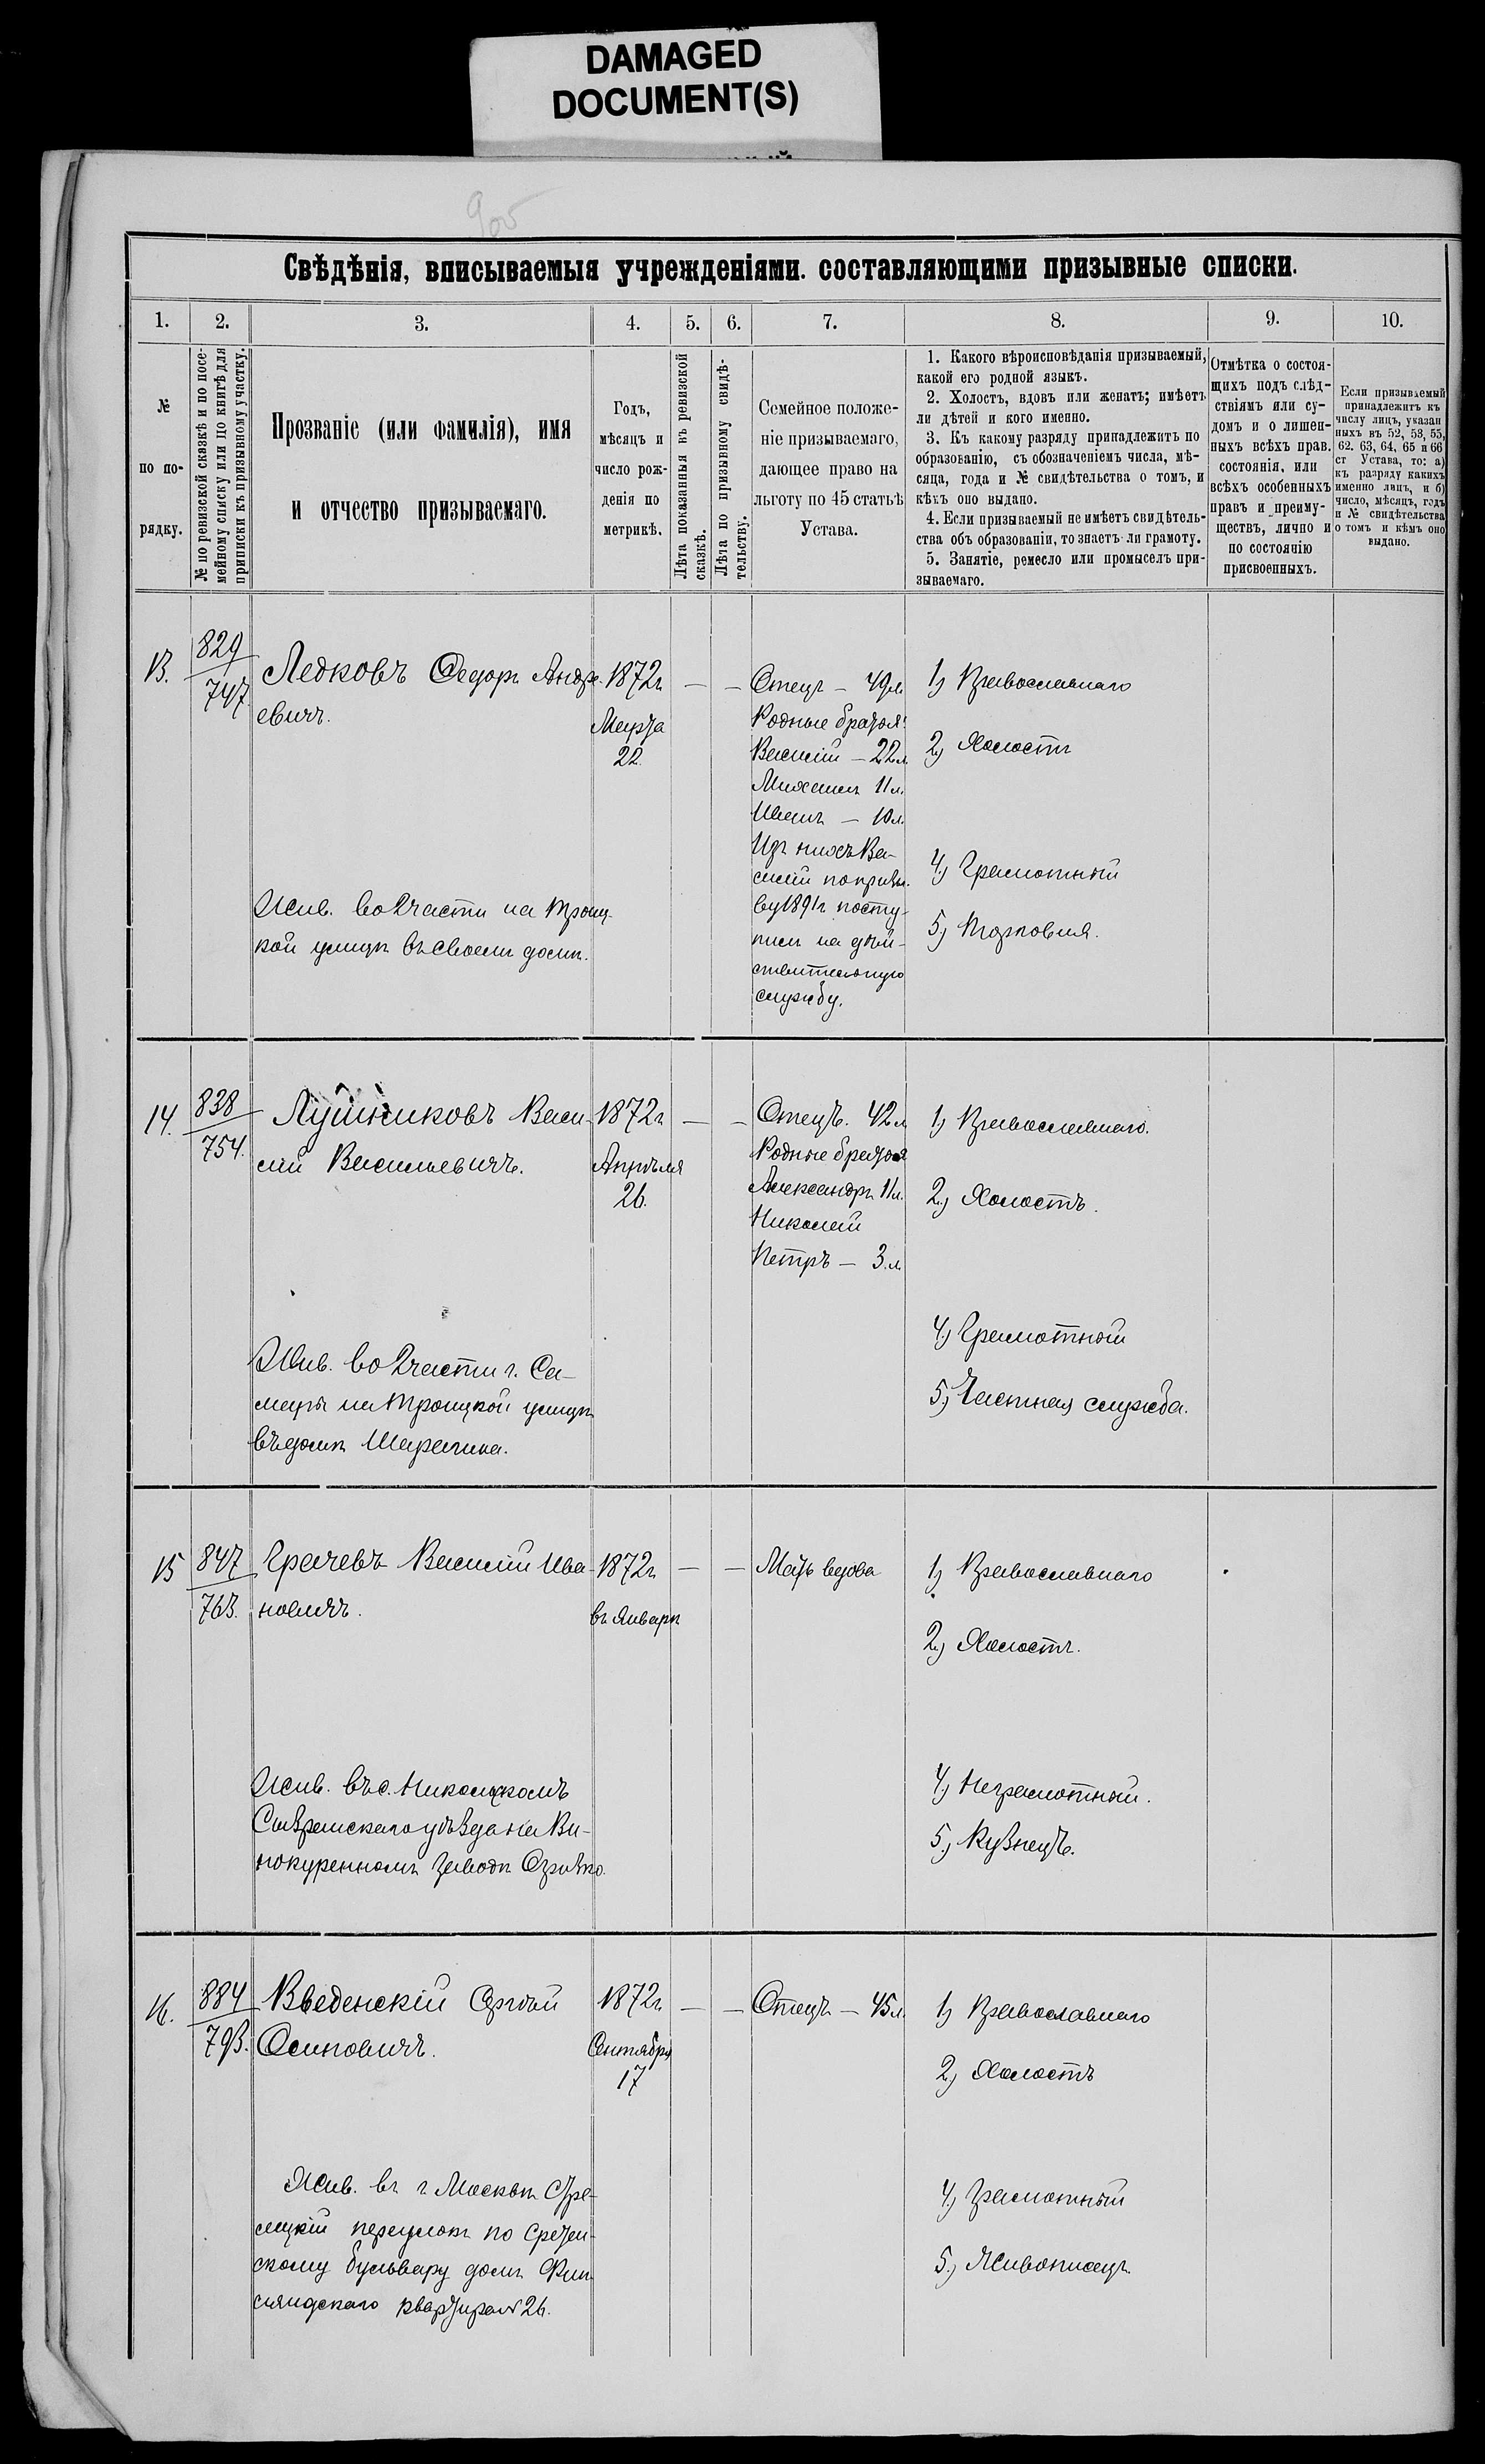 DAMAGED
DOCUMENT(S)
905
Свѣдѣнія, вписываемыя учрежденіями. составляющими призывные списки.
1. 2. 3. 4. 5. 6. 7. 8. 9. 10.
№
по по-
рядку.
№ по ревизской сказкѣ и по посе-
мейному списку или по книгѣ для
приписки къ призывному участку.
Прозваніе (или фамилія), имя
и отчество призываемаго.
Годъ,
мѣсяцъ и
число рож-
денія по
метрикѣ.
Лѣта показанныя къ ревизской
сказкѣ.
Лѣта по призывному свидѣ-
тельству.
Семейное положе-
ніе призываемаго,
дающее право на
льготу по 45 статьѣ
Устава.
1. Какого вѣроисповѣданія призываемый,
какой его родной языкъ.
2. Холостъ, вдовъ или женатъ; имѣетъ
ли дѣтей и кого именно.
3. Къ какому разряду принадлежитъ по
образованію, съ обозначеніемъ числа, мѣ-
сяца, года и № свидѣтельства о томъ, и
кѣмъ оно выдано.
4. Если призываемый не имѣетъ свидѣтель-
ства объ образованіи, то знаетъ ли грамоту.
5. Занятіе, ремесло или промыселъ при-
зываемаго.
Отмѣтка о состоя-
щихъ подъ слѣд-
ствіямъ или су-
домъ и о лишен-
ныхъ всѣхъ прав.
состоянія, или
всѣхъ особенныхъ
правъ и преиму-
ществъ, лично и
по состоянію
присвоенныхъ.
Если призываемый
принадлежитъ къ
числу лицъ, указан
ныхъ въ 52, 53, 55,
62. 63, 64, 65 и 66
ст Устава, то: а)
къ разряду какихъ
именно лицъ, и б)
число, мѣсяцъ, годъ
и № свидѣтельства
о томъ и кѣмъ оно
выдано.
13.
829
747.
Ледковъ Федоръ Андре-
евичъ.
Жив. во 2 части на Троиц-
кой улицѣ въ своемъ домѣ.
1872г.
Марта
22.
— —
Отецъ — 49 л.
Родные братья:
Василій — 22 л.
Михаилъ 11 л.
Иванъ — 10 л.
Изъ нихъ Ва-
силій по призы-
ву 1891г. посту-
пилъ на дѣй-
ствительную
службу.
1) Православнаго
2) Холостъ
4) Грамотный
5) Торговля.
14.
838
754.
Лушниковъ Васи-
лій Васильевичъ.
Жив. во 2 части г. Са-
мары на Троицкой улицѣ
въ домѣ Шарапина.
1872г.
Апрѣля
26.
— —
Отецъ. 42 л.
Родные братья
Александръ 11 л.
Николай
Петръ — 3 л.
1) Православнаго.
2) Холостъ.
4) Грамотный
5) Частная служба.
15
847
763.
Грачевъ Василій Ива-
новичъ.
Жив. въ с. Никольскомъ
Ставропольскаго уѣзда на Ви-
нокуренномъ заводѣ
1872г.
въ Январѣ
— —
Мать вдова
1) Православнаго
2) Холостъ.
4) Неграмотный.
5) Кузнецъ.
16.
884
793.
Введенскій Сергѣй
Осиповичъ.
Жив. въ г Москвѣ Стрѣ-
лецкій переулокъ по Срѣтен-
скому бульвару домъ Фин-
ляндскаго квартира № 26.
1872г.
Сентября
17
— —
Отецъ — 45 л.
1) Православнаго
2) Холостъ
4) Грамотный
5) Живописецъ.